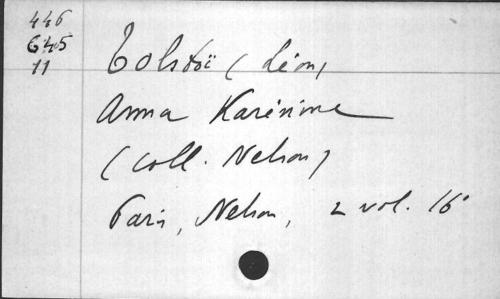 446
645
11
Tolstoï (Léon)
Anna Karénine
(Coll. Nelson)
Paris, Nelson, 2 vol. 16°